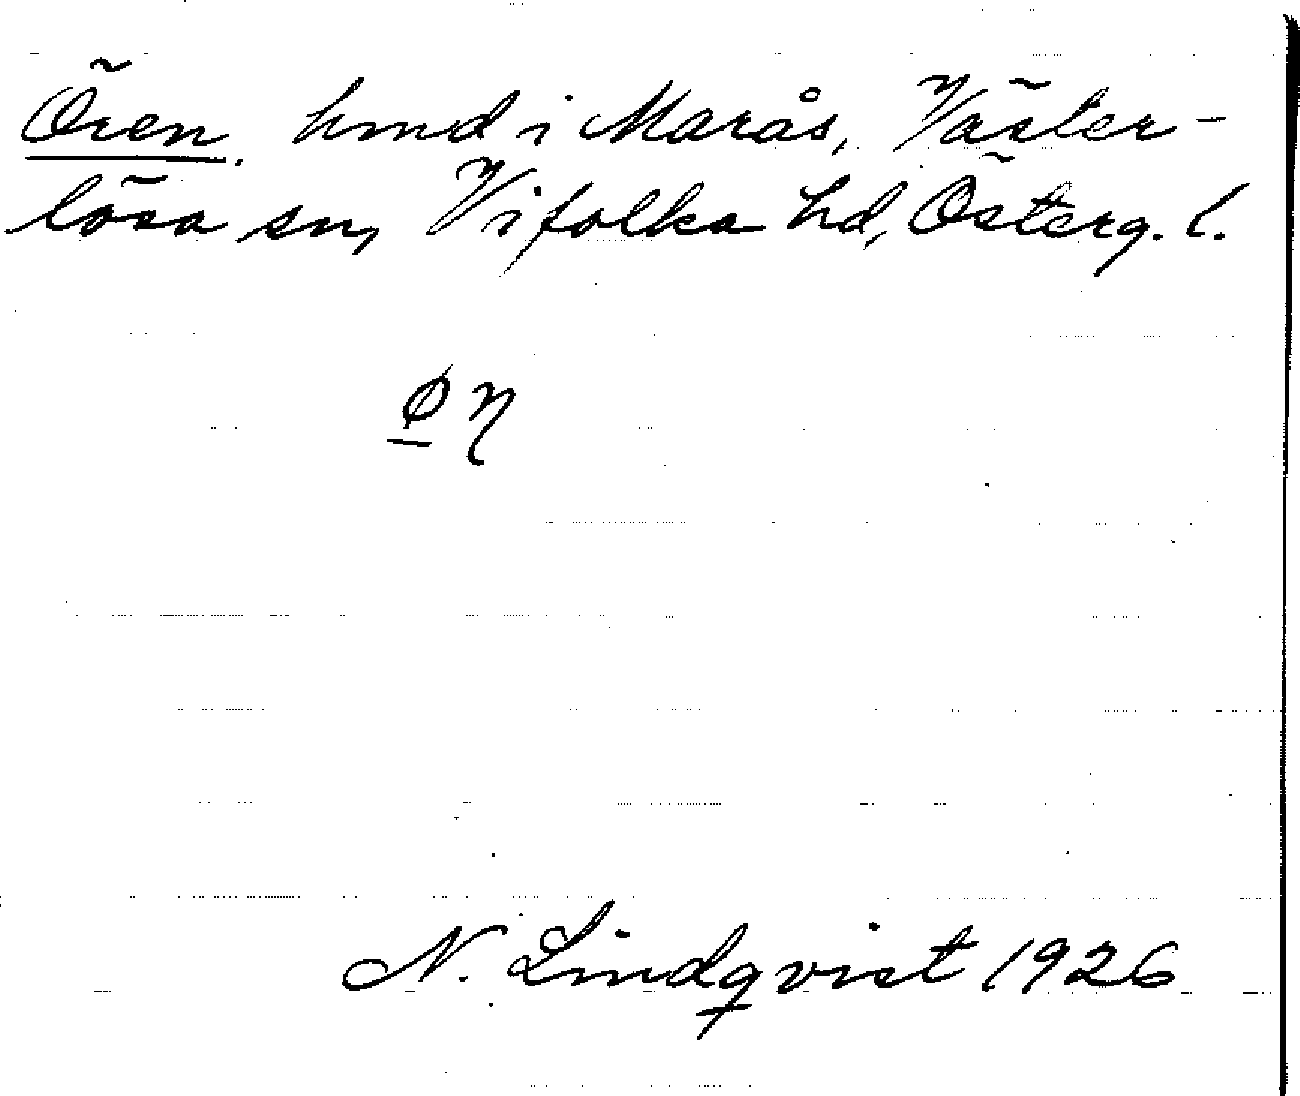 Ören. hmd i Marås, Väster-
lösa sn, Vifolka hd, Österg. l.
N. Lindqvist 1926